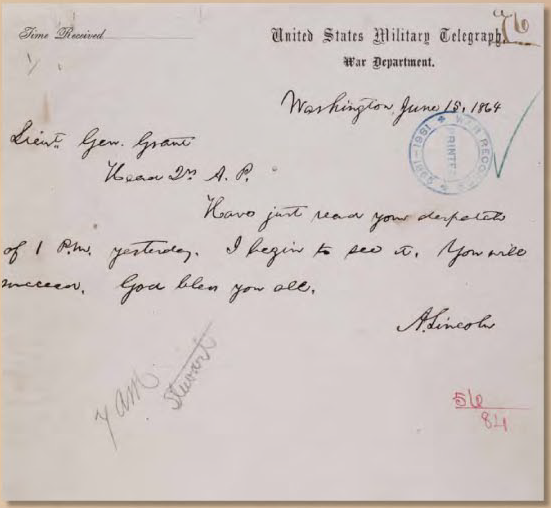 Time Received
76
United States Military Telegraph,
War Department.
Washington, June 15, 1864
Lieut. Gen. Grant
Head Qrs. A. P.
Have just read your despatch
of 1 P.M. yesterday. I begin to see it. You will
succeed. God bless you all.
A. Lincoln
WAR RECORDS 1861-1865
PRINTED
7 AM
Stewart
56
84